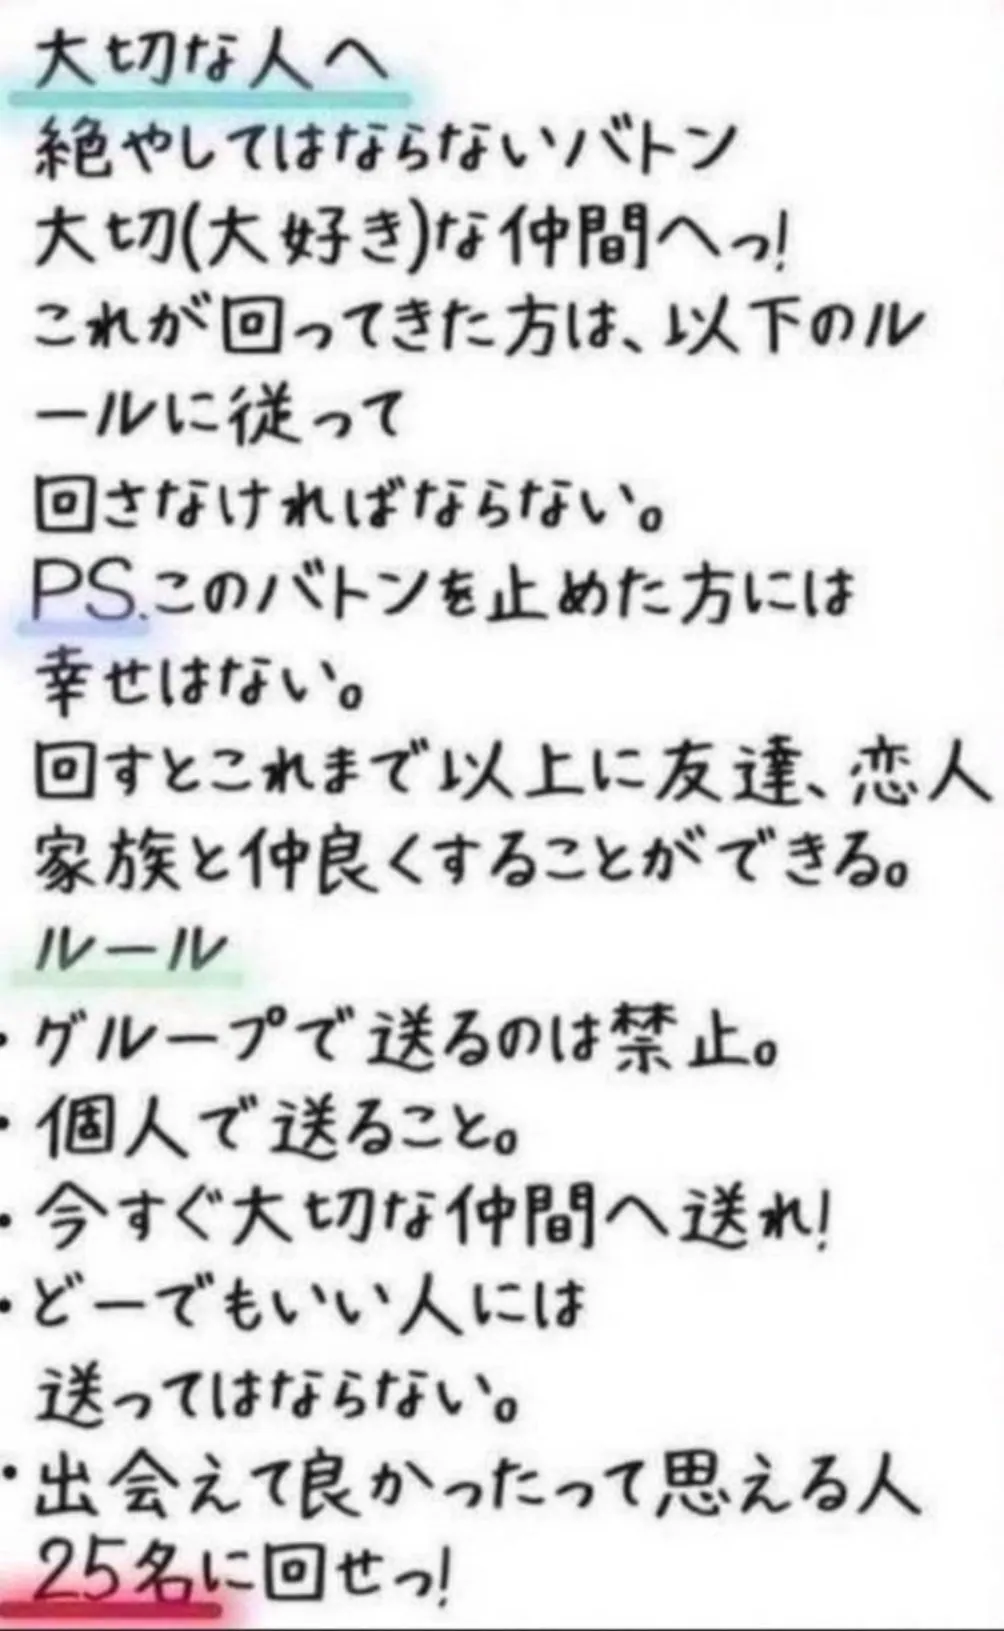 大切な人へ
絶やしてはならないバトン
大切(大好き)な仲間へっ!
これが回ってきた方は、以下のル
ールに従って
回さなければならない。
PS.このバトンを止めた方には
幸せはない。
回すとこれまで以上に友達、恋人
家族と仲良くすることができる。
ルール
・グループで送るのは禁止。
・個人で送ること。
・今すぐ大切な仲間へ送れ!
・どーでもいい人には
送ってはならない。
・出会えて良かったって思える人
25名に回せっ!